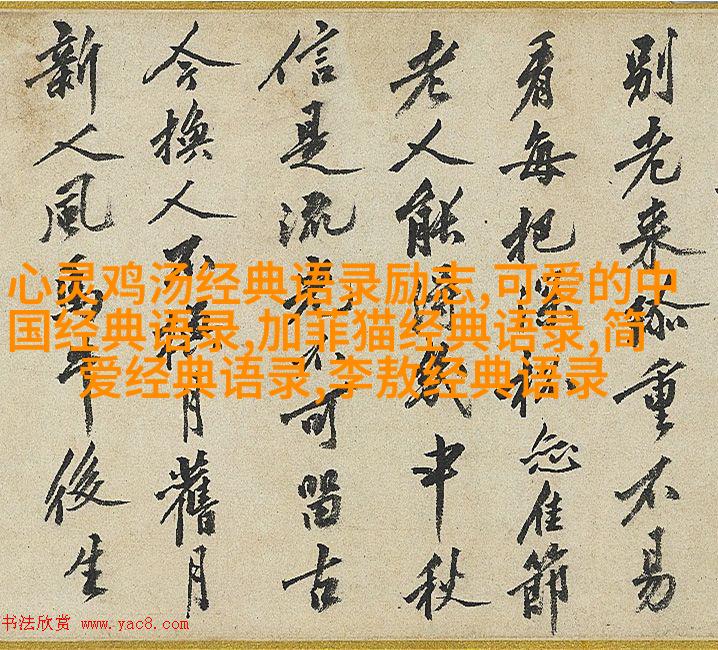 別老来添重不易
看每把佳節
老人能得幾中秋
信是流光不可留古
今換人不換月舊月
新人風馬牛後生
心灵鸡汤经典语录励志,可爱的中
国经典语录,加菲猫经典语录,简
爱经典语录,李敖经典语录
书法欣赏 www.yac8.com